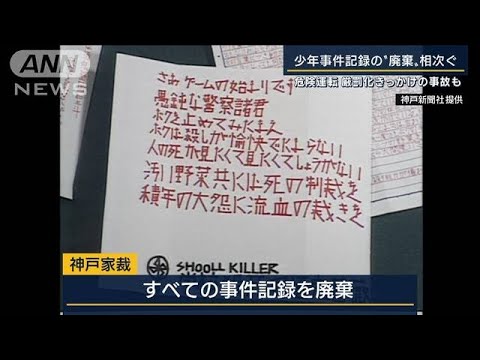 ANN
NEWS
少年事件記録の"廃棄"相次ぐ
危険運転 厳罰化きっかけの事故も
神戸新聞社提供
さあゲームの始まりです
愚鈍な警察諸君
ボクを止めてみたまえ
ボクは殺しが愉快でたまらない
人の死が見たくて見たくてしょうがない
汚い野菜共には死の制裁を
積年の大怨に流血の裁きを
SHOOLL KILLER
神戸家裁
すべての事件記録を廃棄